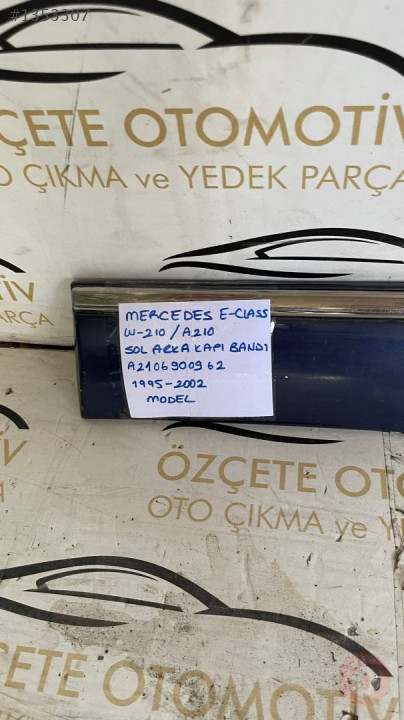 #1353307
ÇETE OTOMOTİV
O ÇIKMA ve YEDEK PARÇA
TİV
RÇA
MERCEDES E-CLASS
W-210 / A210
SOL ARKA KAPI BANDI
A2106900962
1995-2002
MODEL
ÖZÇETE OTO
OTO ÇIKMA ve YED
ÖZÇETE OTOMOTİV